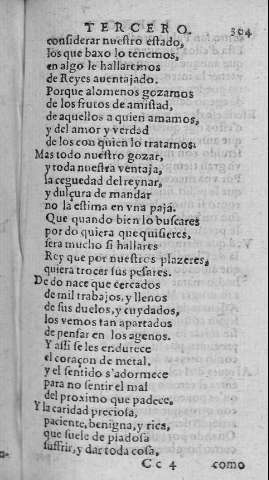 TERCERO. 304
considerar nuestro estado,
los que baxo lo tenemos,
en algo le hallaremos
de Reyes auentajado.
Porque alomenos gozamos
de los frutos de amistad,
de aquellos a quien amamos,
y del amor y verdad
de los con quien lo tratamos.
Mas todo nuestro gozar,
y toda nuestra ventaja,
la ceguedad del reynar,
y dulçura de mandar
no la estima en vna paja.
Que quando bien lo buscares
por do quiera que quisieres,
sera mucho si hallares
Rey que por nuestros plazeres,
quiera trocar sus pesares.
De do nace que cercados
de mil trabajos, y llenos
de sus duelos, y cuydados,
los vemos tan apartados
de pensar en los agenos.
Y assi se les endurece
el coraçon de metal,
y el sentido s'adormece
para no sentir el mal
del proximo que padece,
Y la caridad preciosa,
paciente, benigna, y rica,
que suele de piadosa
suffrir, y dar toda cosa,
Cc 4 como